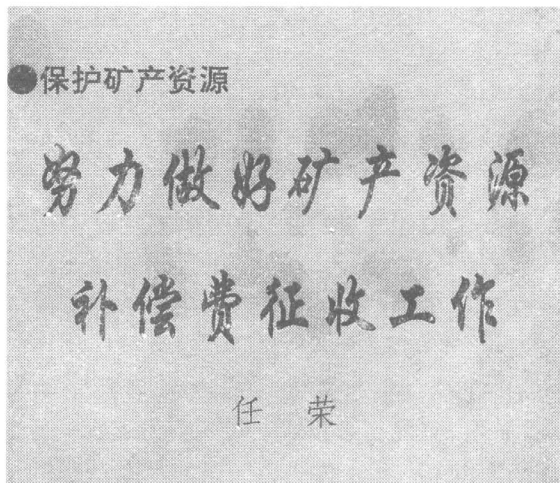 ●保护矿产资源
努力做好矿产资源
补偿费征收工作
任 荣